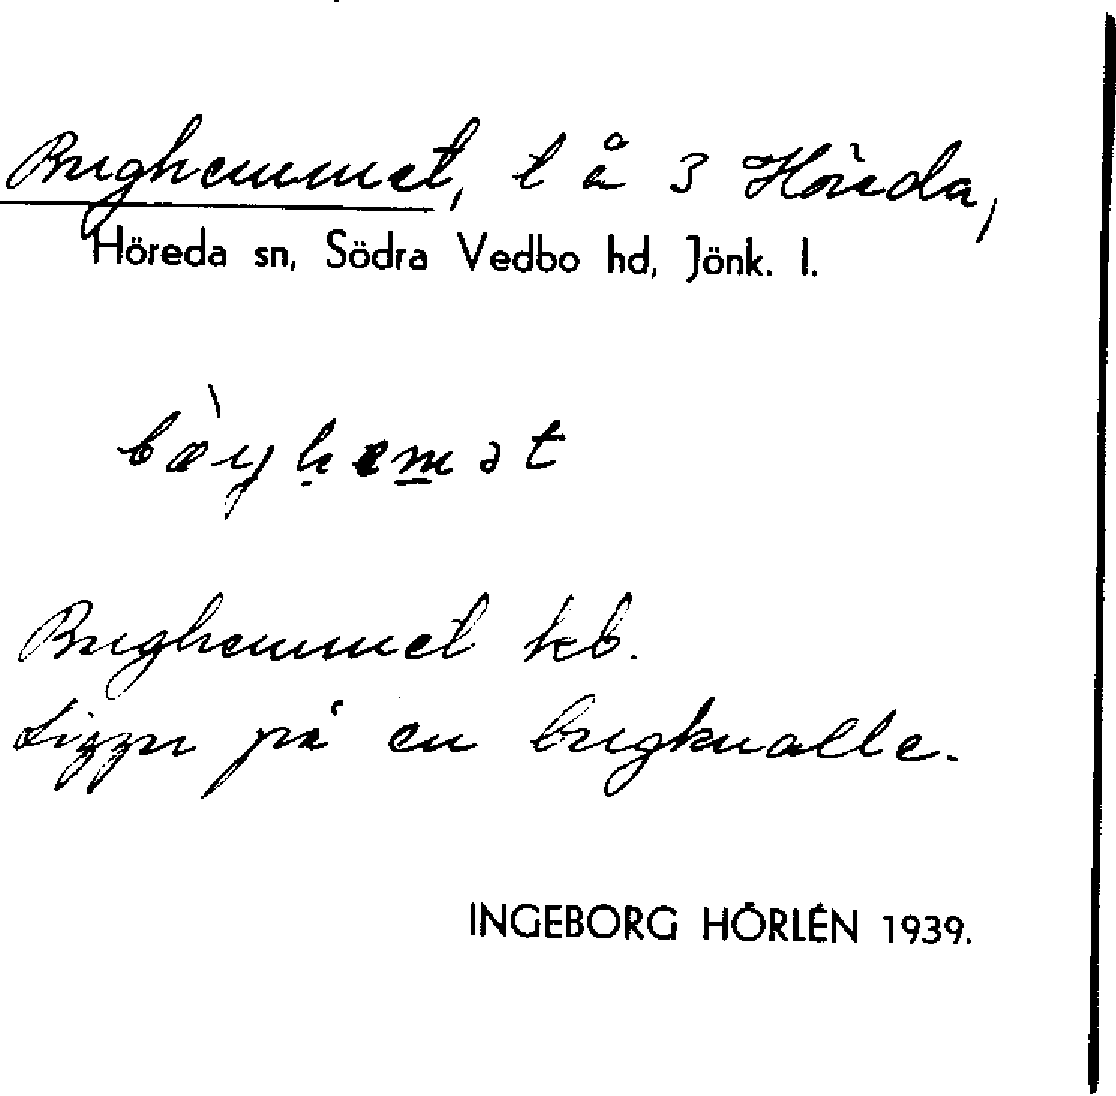 Berghemmet, l å 3 Höreda,
Höreda sn, Södra Vedbo hd, Jönk. l.
Berghemmet kb.
Ligger på en bergknalle.
INGEBORG HÖRLÉN 1939.